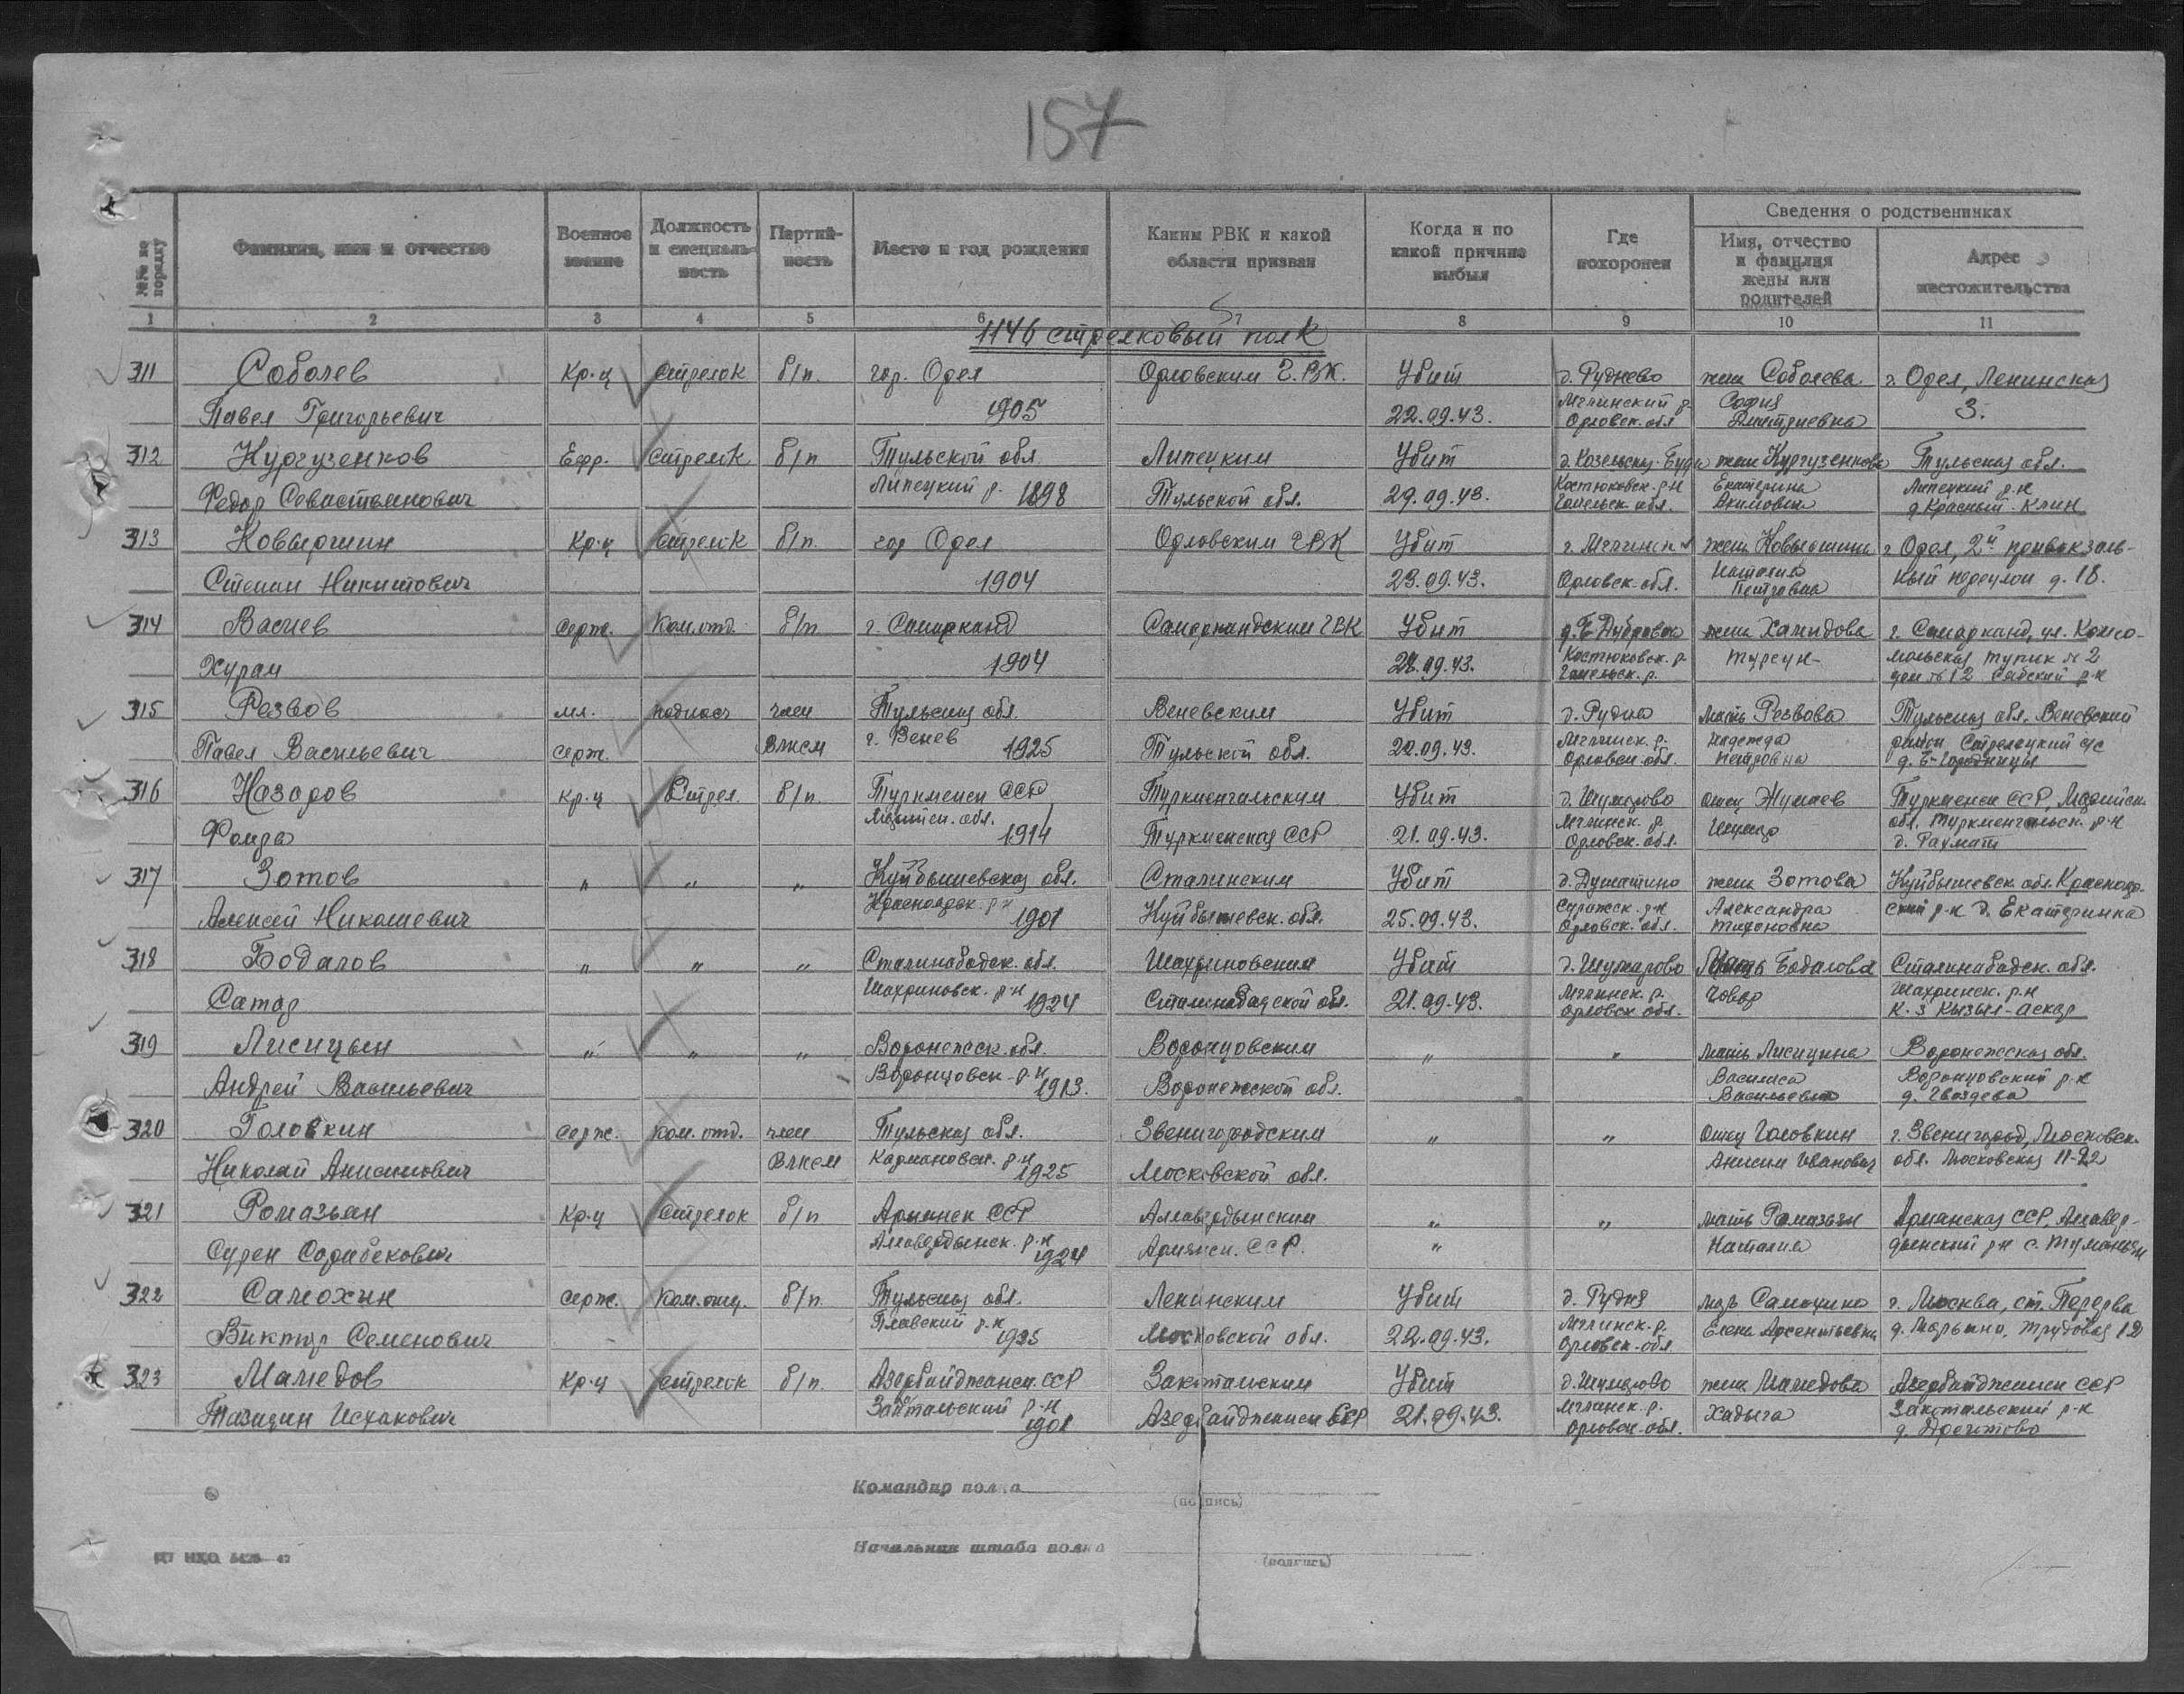 157
№№ по порядку
Фамилия, имя и отчество
Военное звание
Должность и специальность
Партийность
Место и год рождения
Каким РВК и какой области призван
Когда и по какой причине выбыл
Где похоронен
Сведения о родственниках
Имя, отчество и фамилия жены или родителей
Адрес местожительства
1 2 3 4 5 6 8 9 10 11
1146 стрелковый полк
311 Соболев Кр-ц стрелок б/п. гор. Орел Орловским Г.ВК. Убит д. Руднево жена Соболева г. Орел, Ленинская
Павел Григорьевич 1905 22.09.43. Мглинский р- Орловск. обл София Дмитриевна 3.
312 Кургузенков Ефр. стрелок б/п Тульской обл Липецким Убит д. Козельская-Буда жена Кургузенкова Тульская обл.
Федор Севастьянович Липецкий р. 1898 Тульской обл. 29.09.43. Костюковск. р-н Гомельск. обл. Екатерина Акимовна Липецкий р-н д Красный-Клин
313 Ковыршин Кр-ц стрелок б/п. гор Орел Орловским ГВК Убит г. Мглинск жена Ковыршина г Орел, 2й привокзаль-
Степан Никитович 1904 23.09.43. Орловск. обл. Наталия Петровна ный переулок д. 18.
314 Васиев Серж. Ком. отд. б/п г. Самарканд Самаркандским ГВК Убит д. Б Дубровок жена Хамидова г. Самарканд, ул. Комсо-
Хурам 1904 28.09.43. Костюковск. р- Гомельск. р. Турсун- мольская тупик № 2 дом № 12 Сиабский р-н
315 Резвов мл. поднос член Тульская обл. Веневским Убит д. Рудна мать Резвова Тульская обл. Веневский
Павел Васильевич серж. ВЛКСМ г. Венев 1925 Тульской обл. 22.09.43. Мглинск. р. Орловск. обл. Надежда Петровна район Стрелецкий с/с д. Б-Городницы
316 Назаров Кр-ц Стрел. б/п. Туркменск ССР Туркменгальским Убит д. Шумарово отец Жумаев Туркменск ССР, Марийск.
Марийск. обл. 1914 Туркменская ССР 21.09.43. Мглинск. р. Орловск. обл. обл. Туркменгальск. р-н д. Рахмат
317 Зотов " " " Куйбышевская обл. Сталинским Убит д. Душатино жена Зотова Куйбышевск обл. Краснояр-
Алексей Николаевич Красноярск. р-н 1901 Куйбышевск. обл. 25.09.43. Суражск. р-н Орловск. обл. Александра Тихоновна ский р-н д. Екатеринка
318 Бодалов " " " Сталинабадск. обл. Шахриновским Убит д. Шумарово Мать Бодалова Сталинабадск. обл.
Сатар Шахриновск. р-н 1924 Сталинабадской обл. 21.09.43. Мглинск. р. Орловск обл. Шахринск. р-н К-з Кызыл-Аскар
319 Лисицын " " " Воронежск. обл. Воронцовским " " мать Лисицина Воронежская обл.
Андрей Васильевич Воронцовск. р-н 1913. Воронежской обл. Василиса Васильевна Воронцовский р-н д. Гвоздева
320 Головкин Серж. Ком. отд. член Тульская обл. Звенигородским " " отец Головкин г. Звенигород, Московск.
Николай Анисимович ВЛКСМ Кармановск. р-н 1925 Московской обл. Анисим Иванович обл. Московская 11-22
321 Ромазьян Кр-ц стрелок б/п Армянск ССР Алавердынским " " мать Ромазьян Армянская ССР, Алавер-
Сурен Сарибекович Алавердынск. р-н 1924 Армянск. ССР. " Наталия дынский р-н с. Туманьян
322 Самохин Серж. б/п. Тульская обл. Ленинским Убит д. Рудня мать г. Москва, ст. Перерва
Виктор Семенович Плавский р-н Московской обл. 22.09.43. Мглинск. р. Орловск. обл Елена Арсентьевна д. Марьино, Трудовая 12
323 Мамедов Кр-ц стрелок б/п. Азербайджанск. ССР Закатальским Убит д. Шумарово жена Мамедова Азербайджанск ССР
Исхакович Закатальский р-н 1901 Азербайджанск ССР 21.09.43. Мглинск. р. Орловск. обл. Хадыга Закатальский р-н
Командир полка
(подпись)
Начальник штаба полка
(подпись)